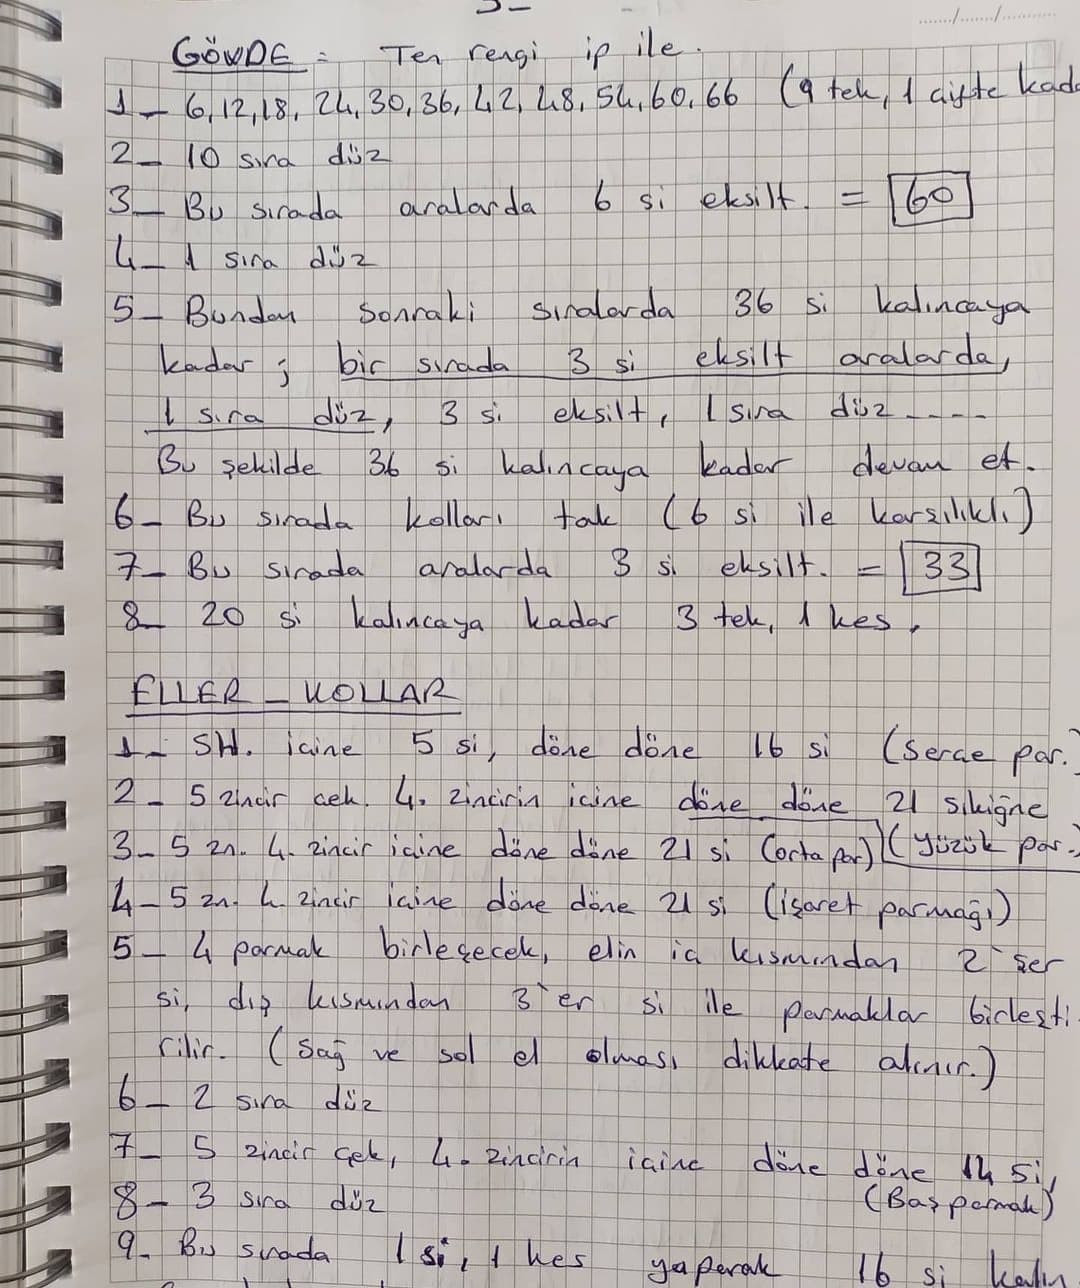 GÖVDE = Ten rengi ip ile.
1- 6, 12, 18, 24, 30, 36, 42, 48, 54, 60, 66 (9 tek, 1 çifte kada
2- 10 sıra düz
3- Bu sırada aralarda 6 si eksilt. = 60
4- 1 sıra düz
5- Bundan sonraki sıralarda 36 si kalıncaya
kadar ; bir sırada 3 si eksilt aralarda,
1 sıra düz, 3 si eksilt, 1 sıra düz ----
Bu şekilde 36 si kalıncaya kadar devam et.
6- Bu sırada kolları tak (6 si ile karşılıklı)
7- Bu sırada aralarda 3 si eksilt. = 33
8- 20 si kalıncaya kadar 3 tek, 1 kes.
ELLER - KOLLAR
1- SH. içine 5 si, döne döne 16 si (Serçe par.)
2- 5 zincir çek. 4. zincirin içine döne döne 21 sıkiğne
(yüzük par.)
3- 5 zn. 4. zincir içine döne döne 21 si (orta par)
4- 5 zn. 4. zincir içine döne döne 21 si (işaret parmağı)
5- 4 parmak birleşecek, elin iç kısmından 2'şer
si, dış kısmından 3'er si ile parmaklar birleşti
rilir. (Sağ ve sol el olması dikkate alınır.)
6- 2 sıra düz
7- 5 zincir çek, 4. zincirin içine döne döne 14 si,
(Baş parmak)
8- 3 sıra düz
9- Bu sırada 1 si, 1 kes yaparak 16 si kalın